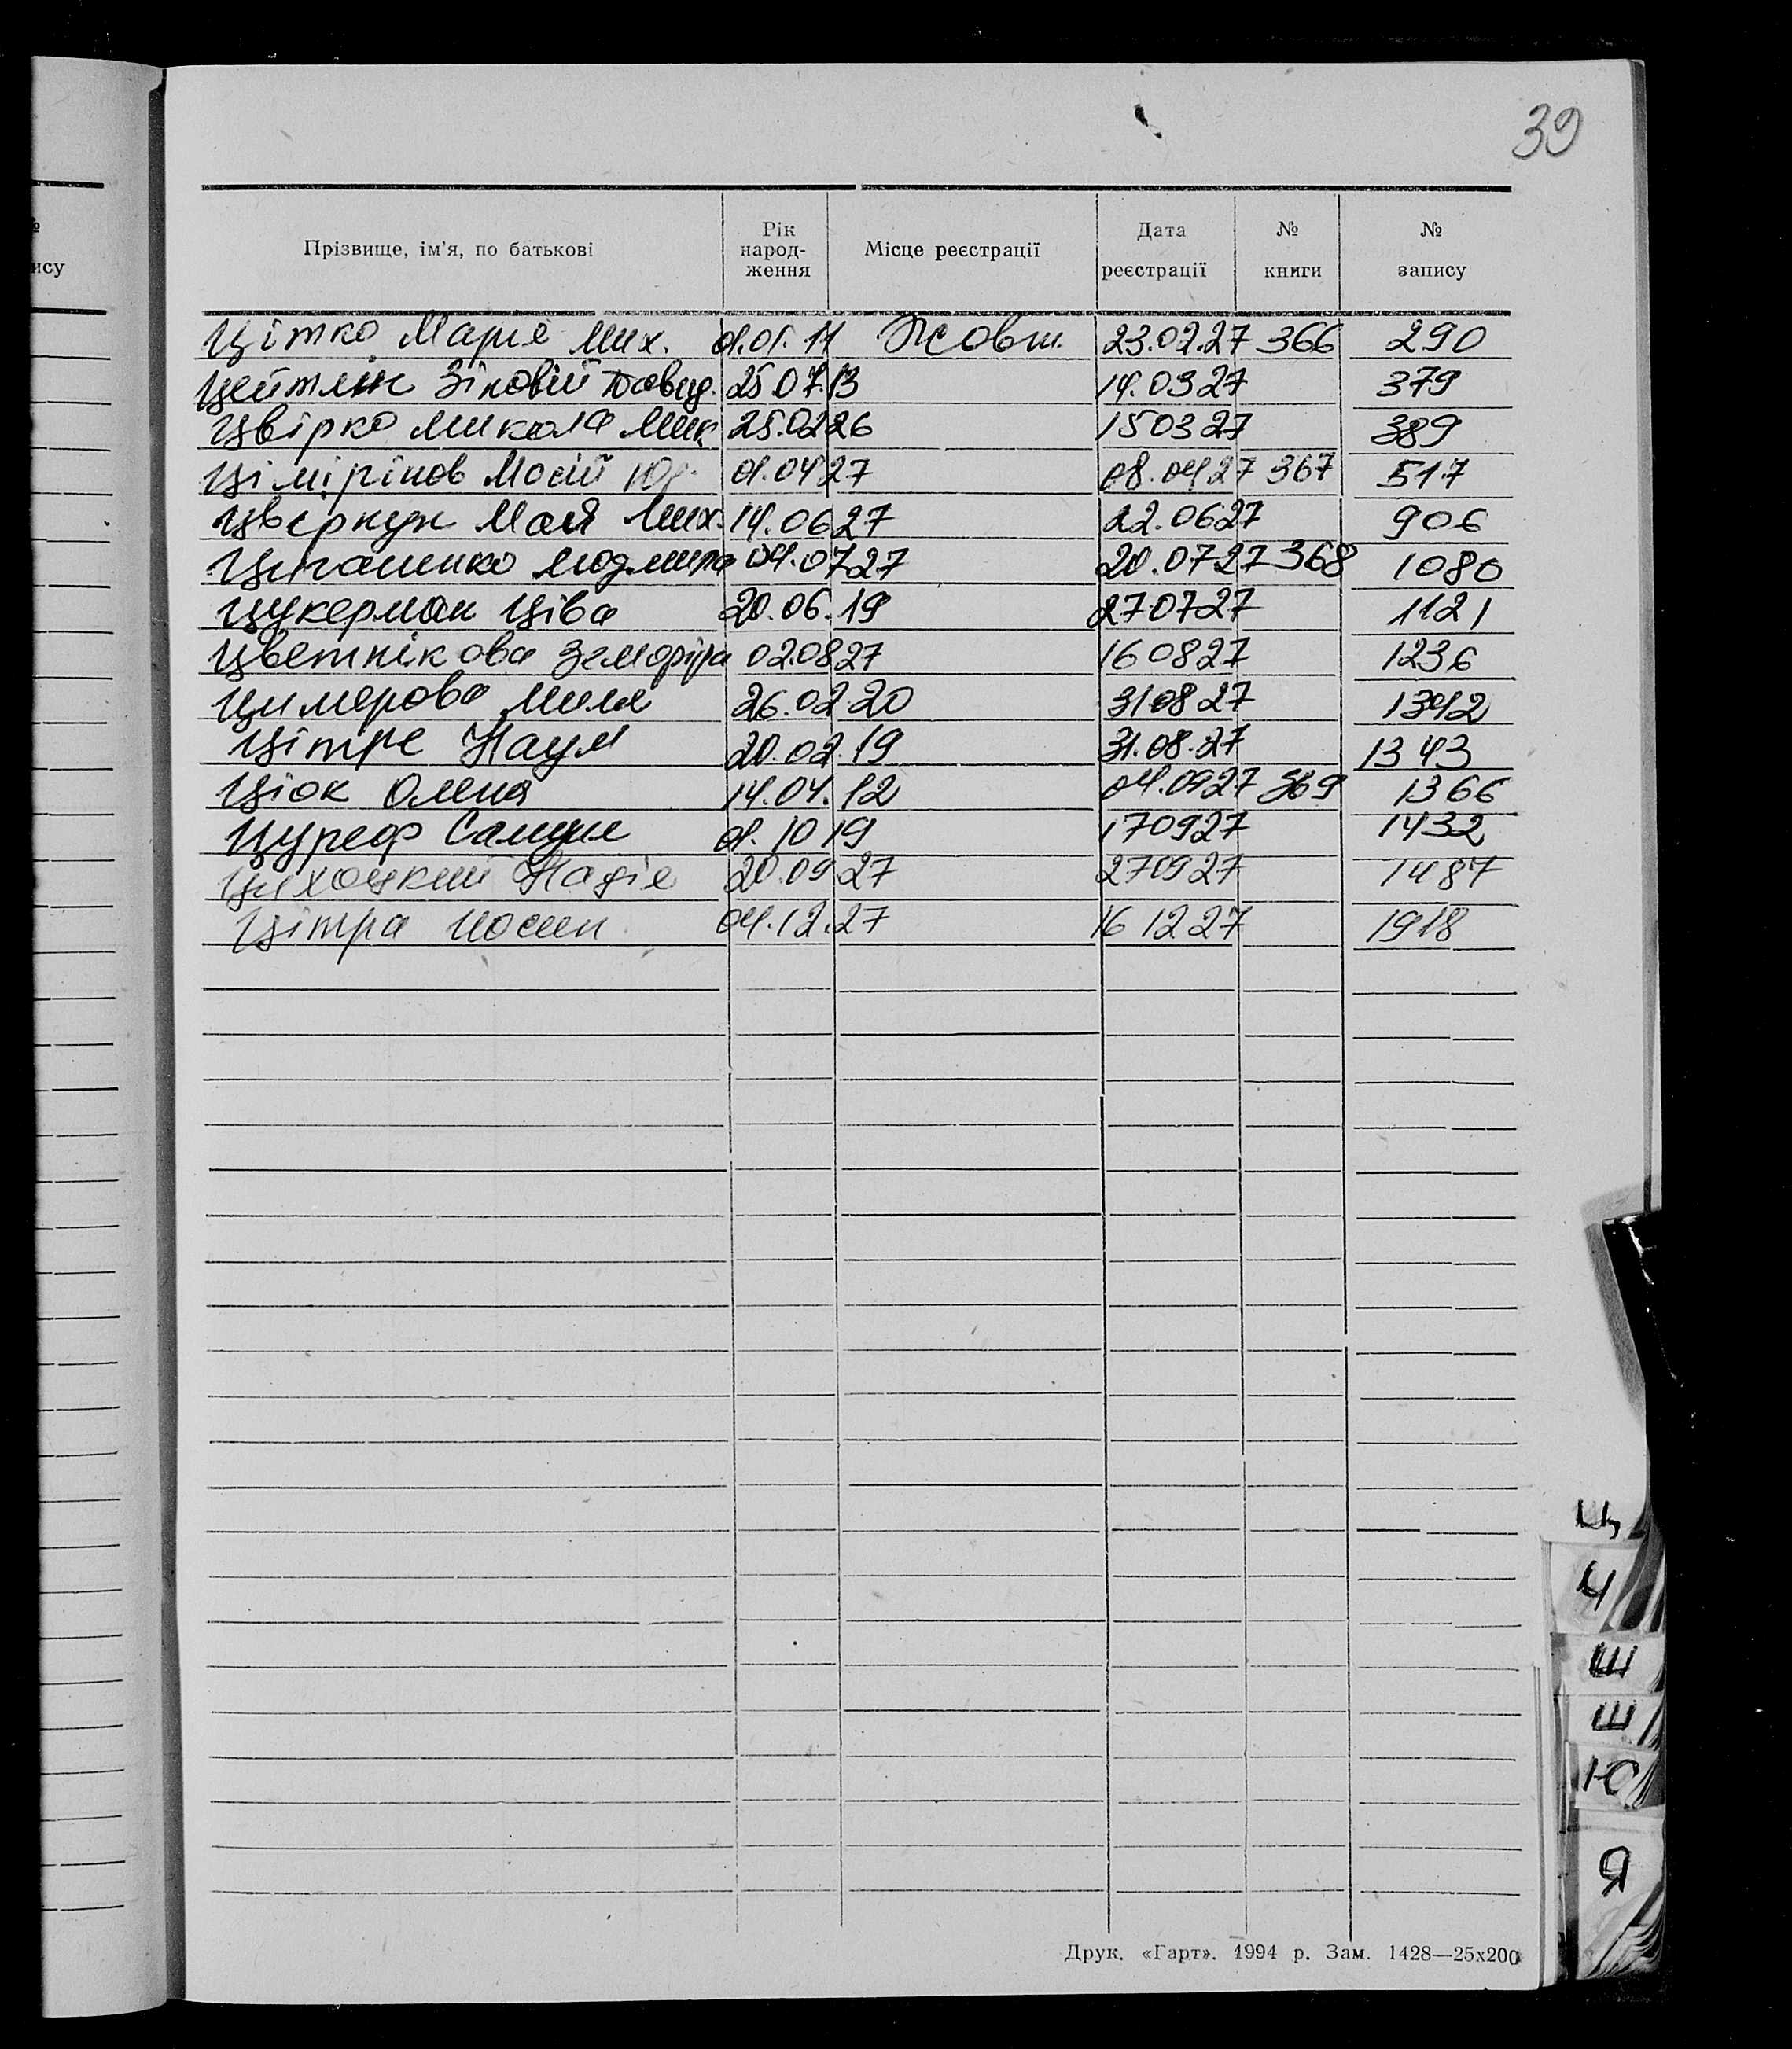 39
№
ису
Прізвище, ім'я, по батькові Рік народ-ження Місце реєстрації Дата реєстрації № книги № запису
Цітко Марія Мих. 01.01.11 Жовт. 23.02.27 366 290
Цейтлін Зіновій Давид. 25.07.13 14.03.27 379
Цвірко Микола Мик 25.02.26 15 03 27 389
Мосій 01.04 27 08.04 27 367 517
Цвіркун Мая Мих. 14.06 27 22.06 27 906
Циганенко Людмила 04.07 27 20.07 27 368 1080
Цукерман Ціва 20.06.19 27 07 27 1121
Цветнікова 02.08 27 16 08 27 1236
Цимерова Миля 26.02.20 31 08 27 1342
Цітре Наум 20.02.19 31.08.27 1343
Ціок Олена 14.04.12 04.09 27 369 1366
Цуреф Самуил 01.10 19 17 09 27 1432
Цихоцкий Надія 20.09.27 27 09 27 1487
Цітра Йосип 04.12.27 16 12 27 1918
Ц
Ч
Ш
Ш
Ю
Я
Друк. «Гарт». 1994 р. Зам. 1428—25х200